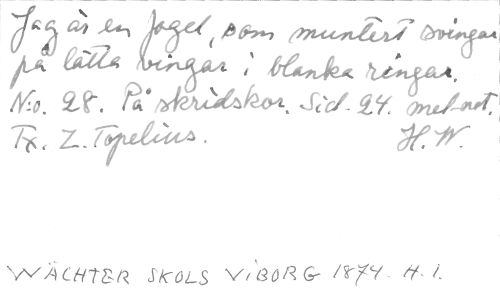 Jag är en fogel, som muntert svingar
på lätta vingar i blanka ringar.
N:o. 28. På skridskor. Sid. 24. mel-not.
Tx. Z. Topelius. H. W.
WÄCHTER SKOLS VIBORG 1874. H. I.